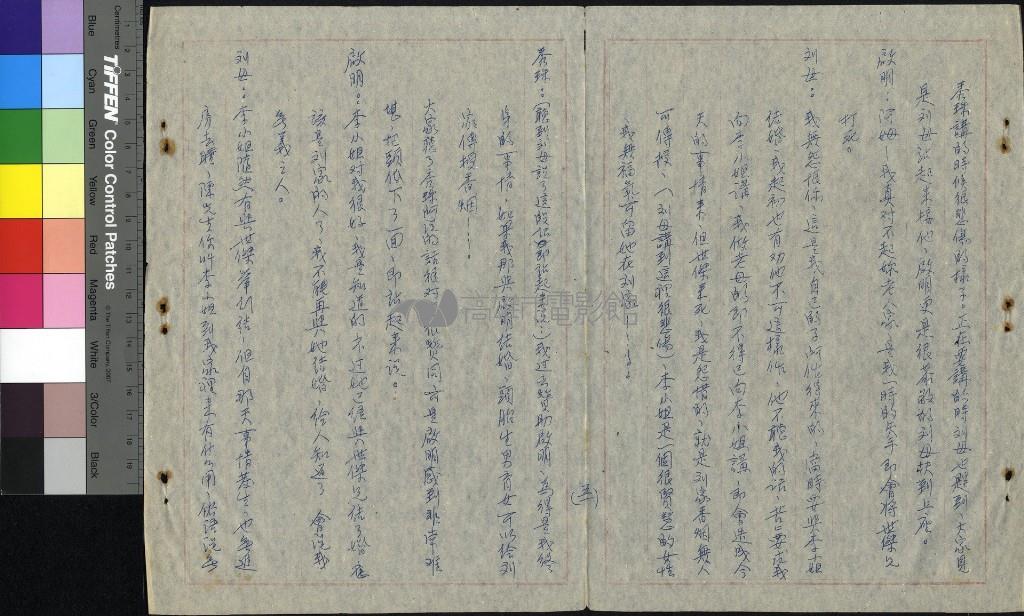 秀珠講的時候很悲傷的樣子。正在要講的時刘母也聽到、大家見
是刘母站起來接他、啟明更是很恭敬的刘母扶到上座。
啟明：阿姆！我真对不起妳老人家、是我一時的失手、即會將世傑兄
打死。
刘母：我無怨恨你、這是我自己的子、阿他得來的、當時要與李小姐
结婚、我起初也有劝他不可這樣做、他不聽我的話、苦苦要求我
向李小姐講、我做老母的即不得已向李小姐講、即會造成今
天的事情來、但世傑来死、我是怨惜的、就是刘家香烟無人
可傳授、（刘母講到這裡很悲傷）、李小姐是一個很賢慧的女性
我無福氣可當她在刘家！
(五)
秀珠：（聽到刘母說了這的話即站起来說：）我过去贊助啟明、為得是我終
身的事情、如果我那與啟明结婚、頭胎生男育女可以给刘
家傳授香烟
大家聽了秀珠 的話很对 很贊同、可是啟明感到非常难
堪、把頭低下了一回、即站起来說。
啟明：李小姐对我很好、我是知道的、不过她已經與世傑兄结了婚、應
該是刘家的人了、我不能再與她结婚、给人知道了、會說我
無義之人。
刘母：李小姐隨然有與世傑举行结 但自那天事情發生、也無進
房去睡、陳先生你叫李小姐到我家裡来有什么用、
Blue
Cyan
Green
Yellow
Red
Magenta
White
3/Color
Black
Centimetres
TIFFEN Color Control Patches
© The Tiffen Company, 2007
高雄市電影館